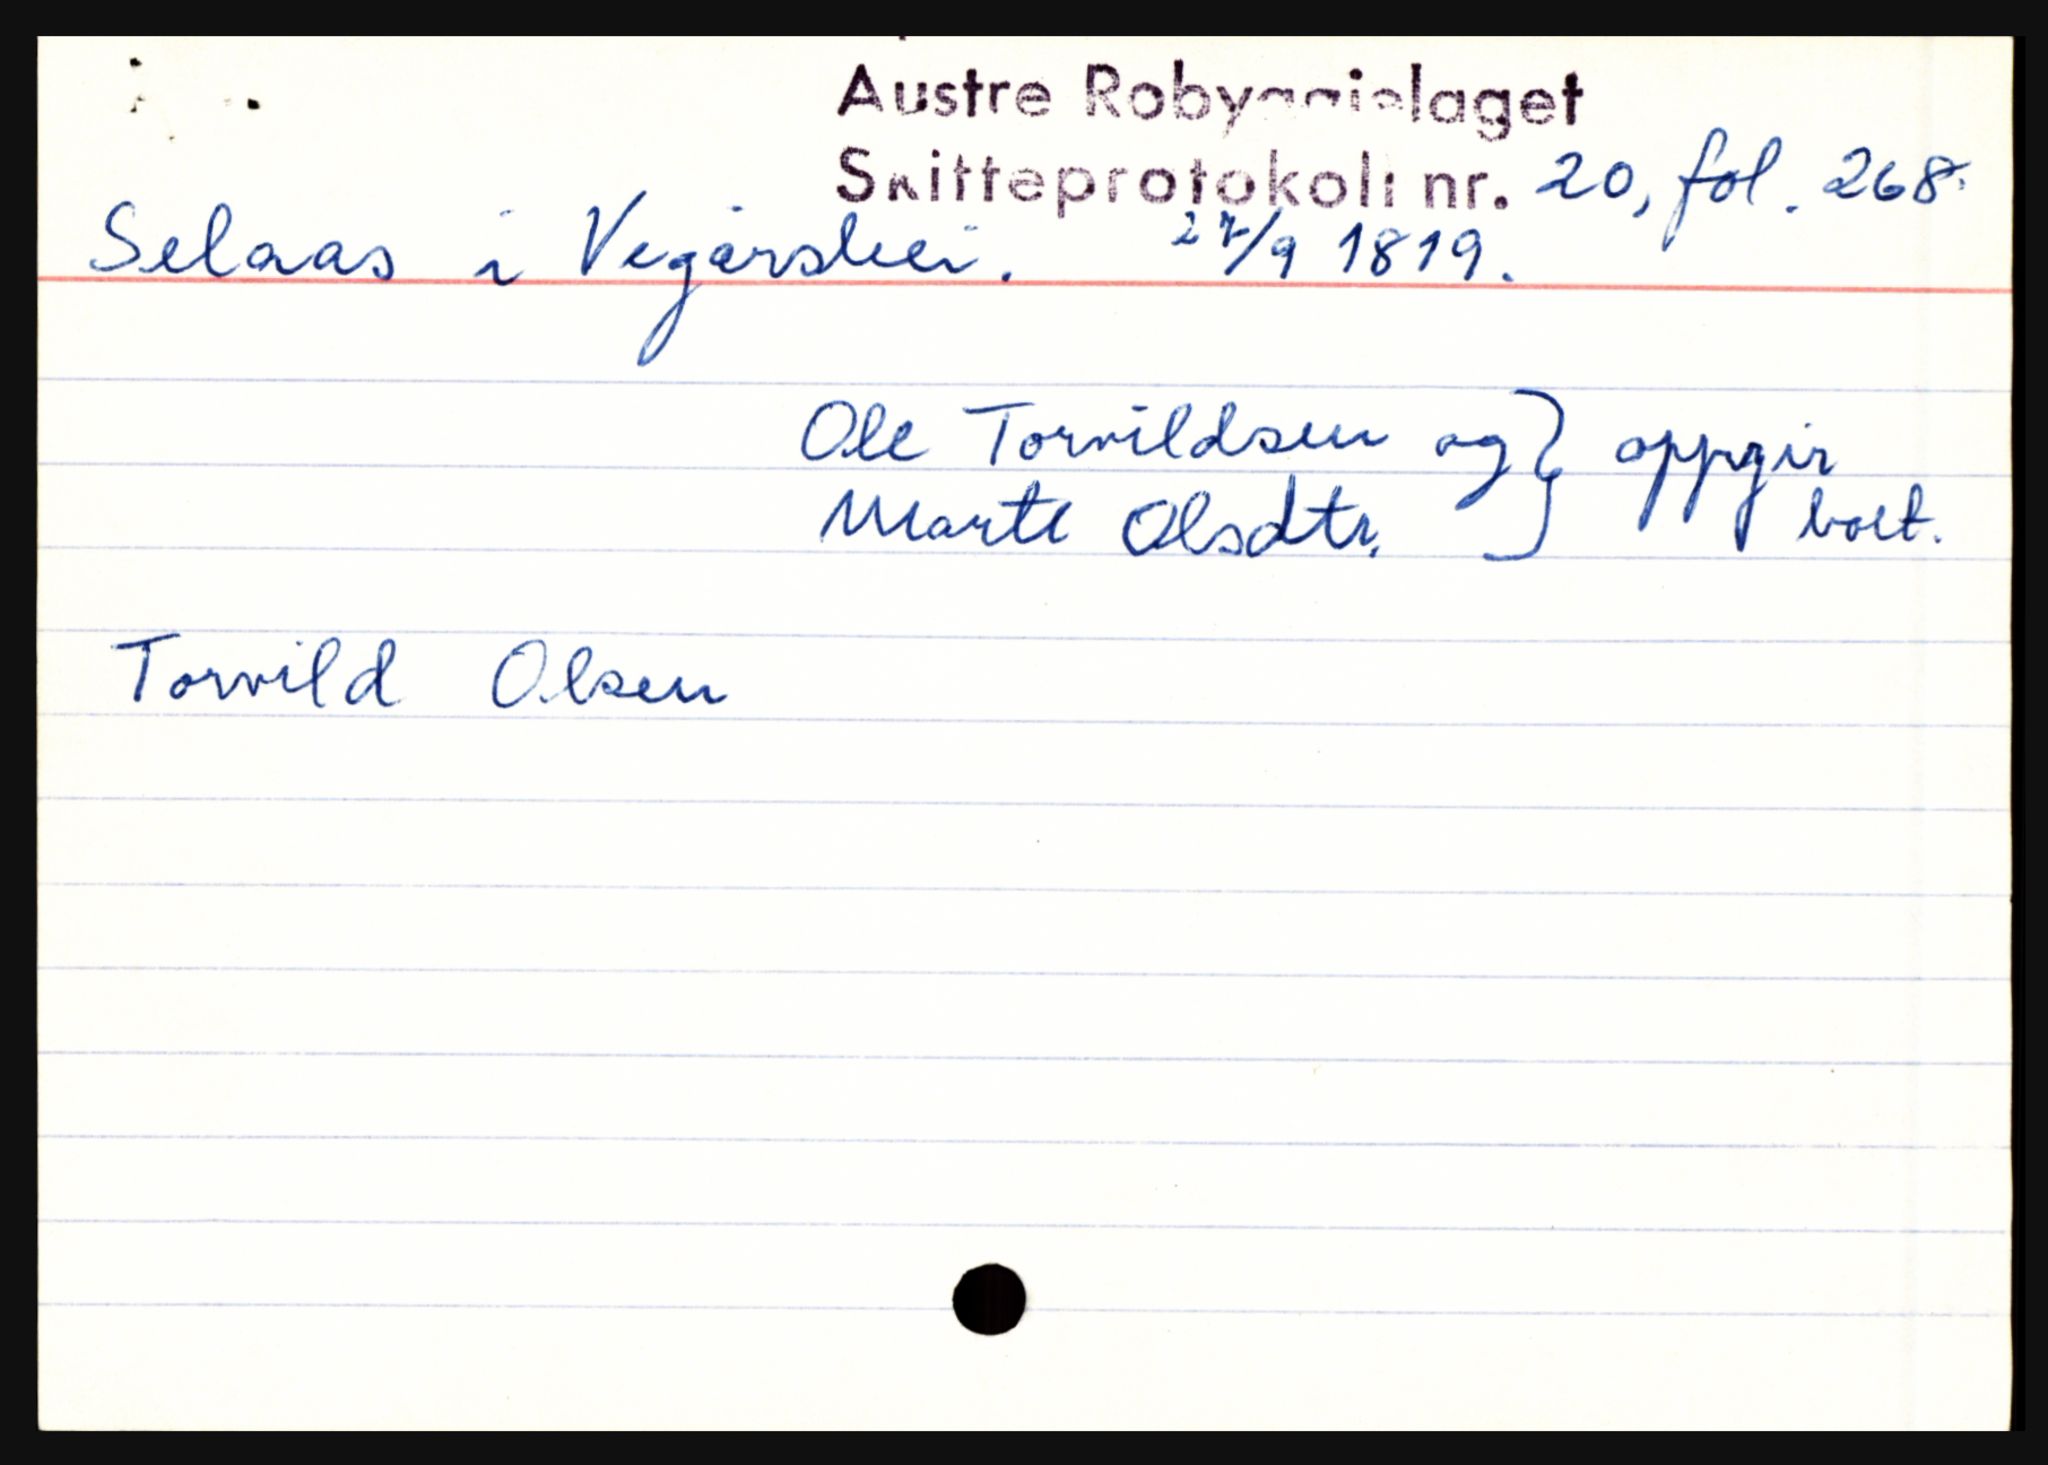 Austre Robyggjelaget
Skifteprotokoll nr. 20, fol. 268.
Selaas i Vegårshei. 27/9 1819.
Ole Torvildsen og } oppgir
Marte Olsdtr. boet.
Torvild Olsen